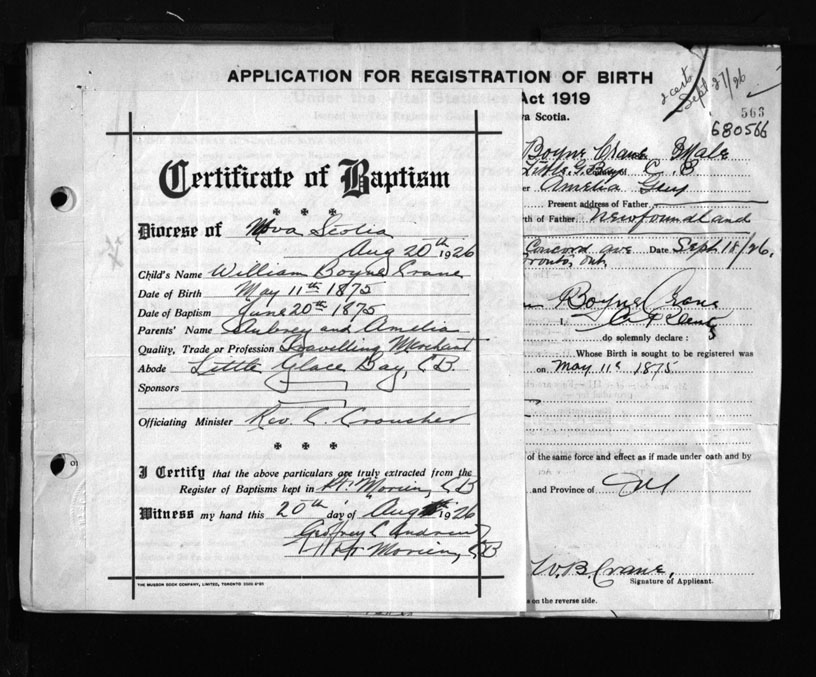 APPLICATION FOR REGISTRATION OF BIRTH
2 certs
Sept 27/26
Act 1919
Scotia.
563
680566
Certificate of Baptism
Diocese of Nova Scotia
Aug 20th 1926
Child's Name William Boyne Crane
Date of Birth May 11th 1875
Date of Baptism June 20th 1875
Parents' Name Aubrey and Amelia
Quality, Trade or Profession Travelling Merchant
Abode Little Glace Bay, C.B.
Sponsors
Officiating Minister Rev. C. Croucher
I Certify that the above particulars are truly extracted from the
Register of Baptisms kept in Pt. Morien, CB
Witness my hand this 20th day of Aug 1926
Geoffrey C Andrew
Pt Morien, CB
THE MUSSON BOOK COMPANY, LIMITED, TORONTO
Boyne Crane Male
Little G. Bay C. B
Amelia
Present address of Father
th of Father Newfoundland
Concord ave Date Sept 18/26.
ronto, Ont
Boyne Crane
I,
do solemnly declare :
Whose Birth is sought to be registered was
on May 11th 1875
of the same force and effect as if made under oath and by
and Province of
W.B. Crane,
Signature of Applicant.
on the reverse side.